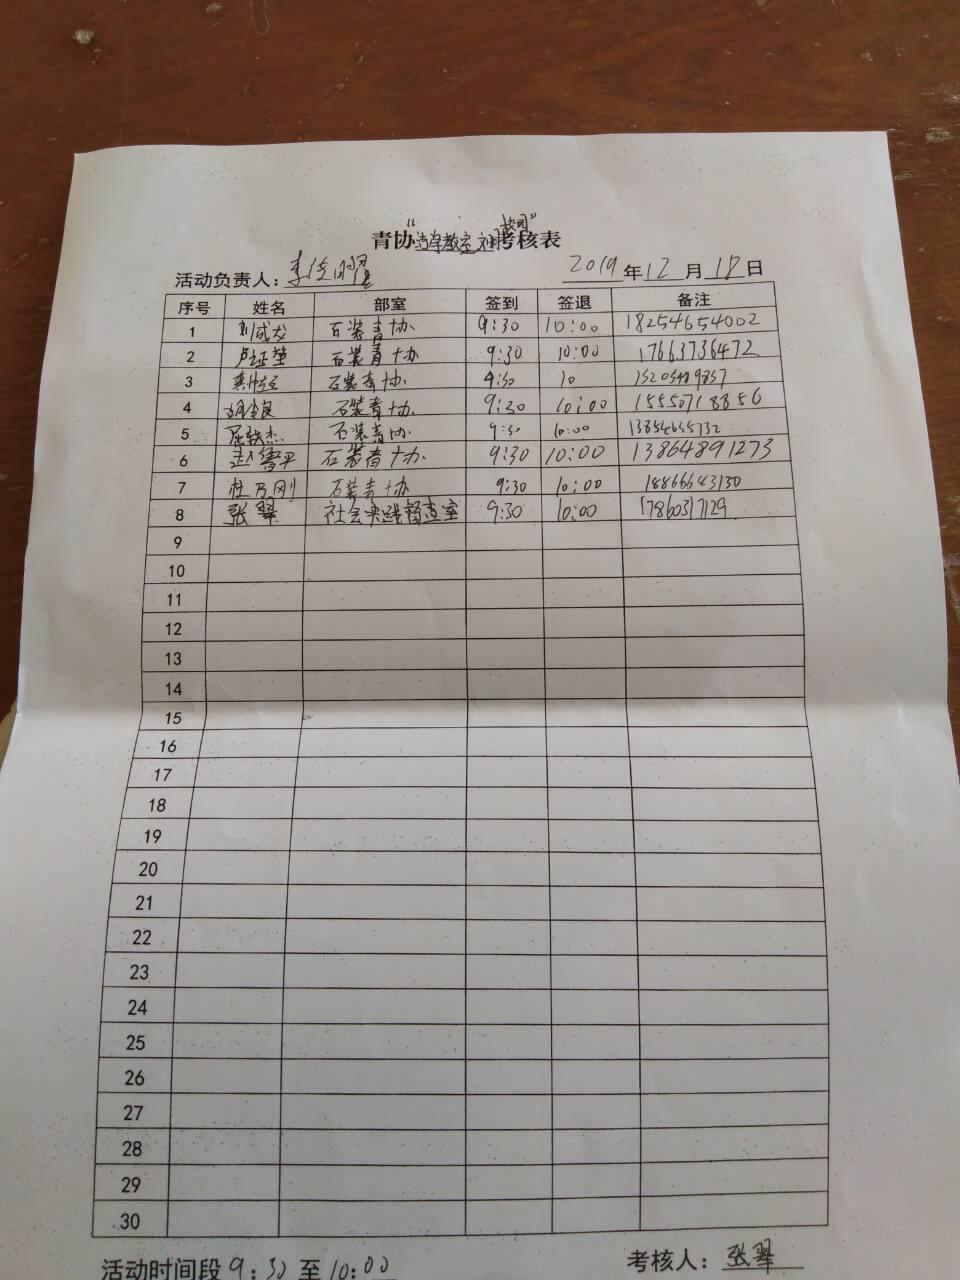 青协"考核表
活动负责人： 2019年12月12日
序号 姓名 部室 签到 签退 备注
1 刘成龙 石装青协 9:30 10:00 18254654002
2 石装青协 9:30 10:00 17663736472
3 石装青协 9:30 10
4 石装青协 9:30 10:00 15550718856
5 石装青协 9:30 10:00
6 石装青协 9:30 10:00 13864891273
7 杜乃刚 石装青协 9:30 10:00 18866643130
8 张翠 社会实践督查室 9:30 10:00 17860317129
9
10
11
12
13
14
15
16
17
18
19
20
21
22
23
24
25
26
27
28
29
30
活动时间段 9:30 至 10:00 考核人：张翠